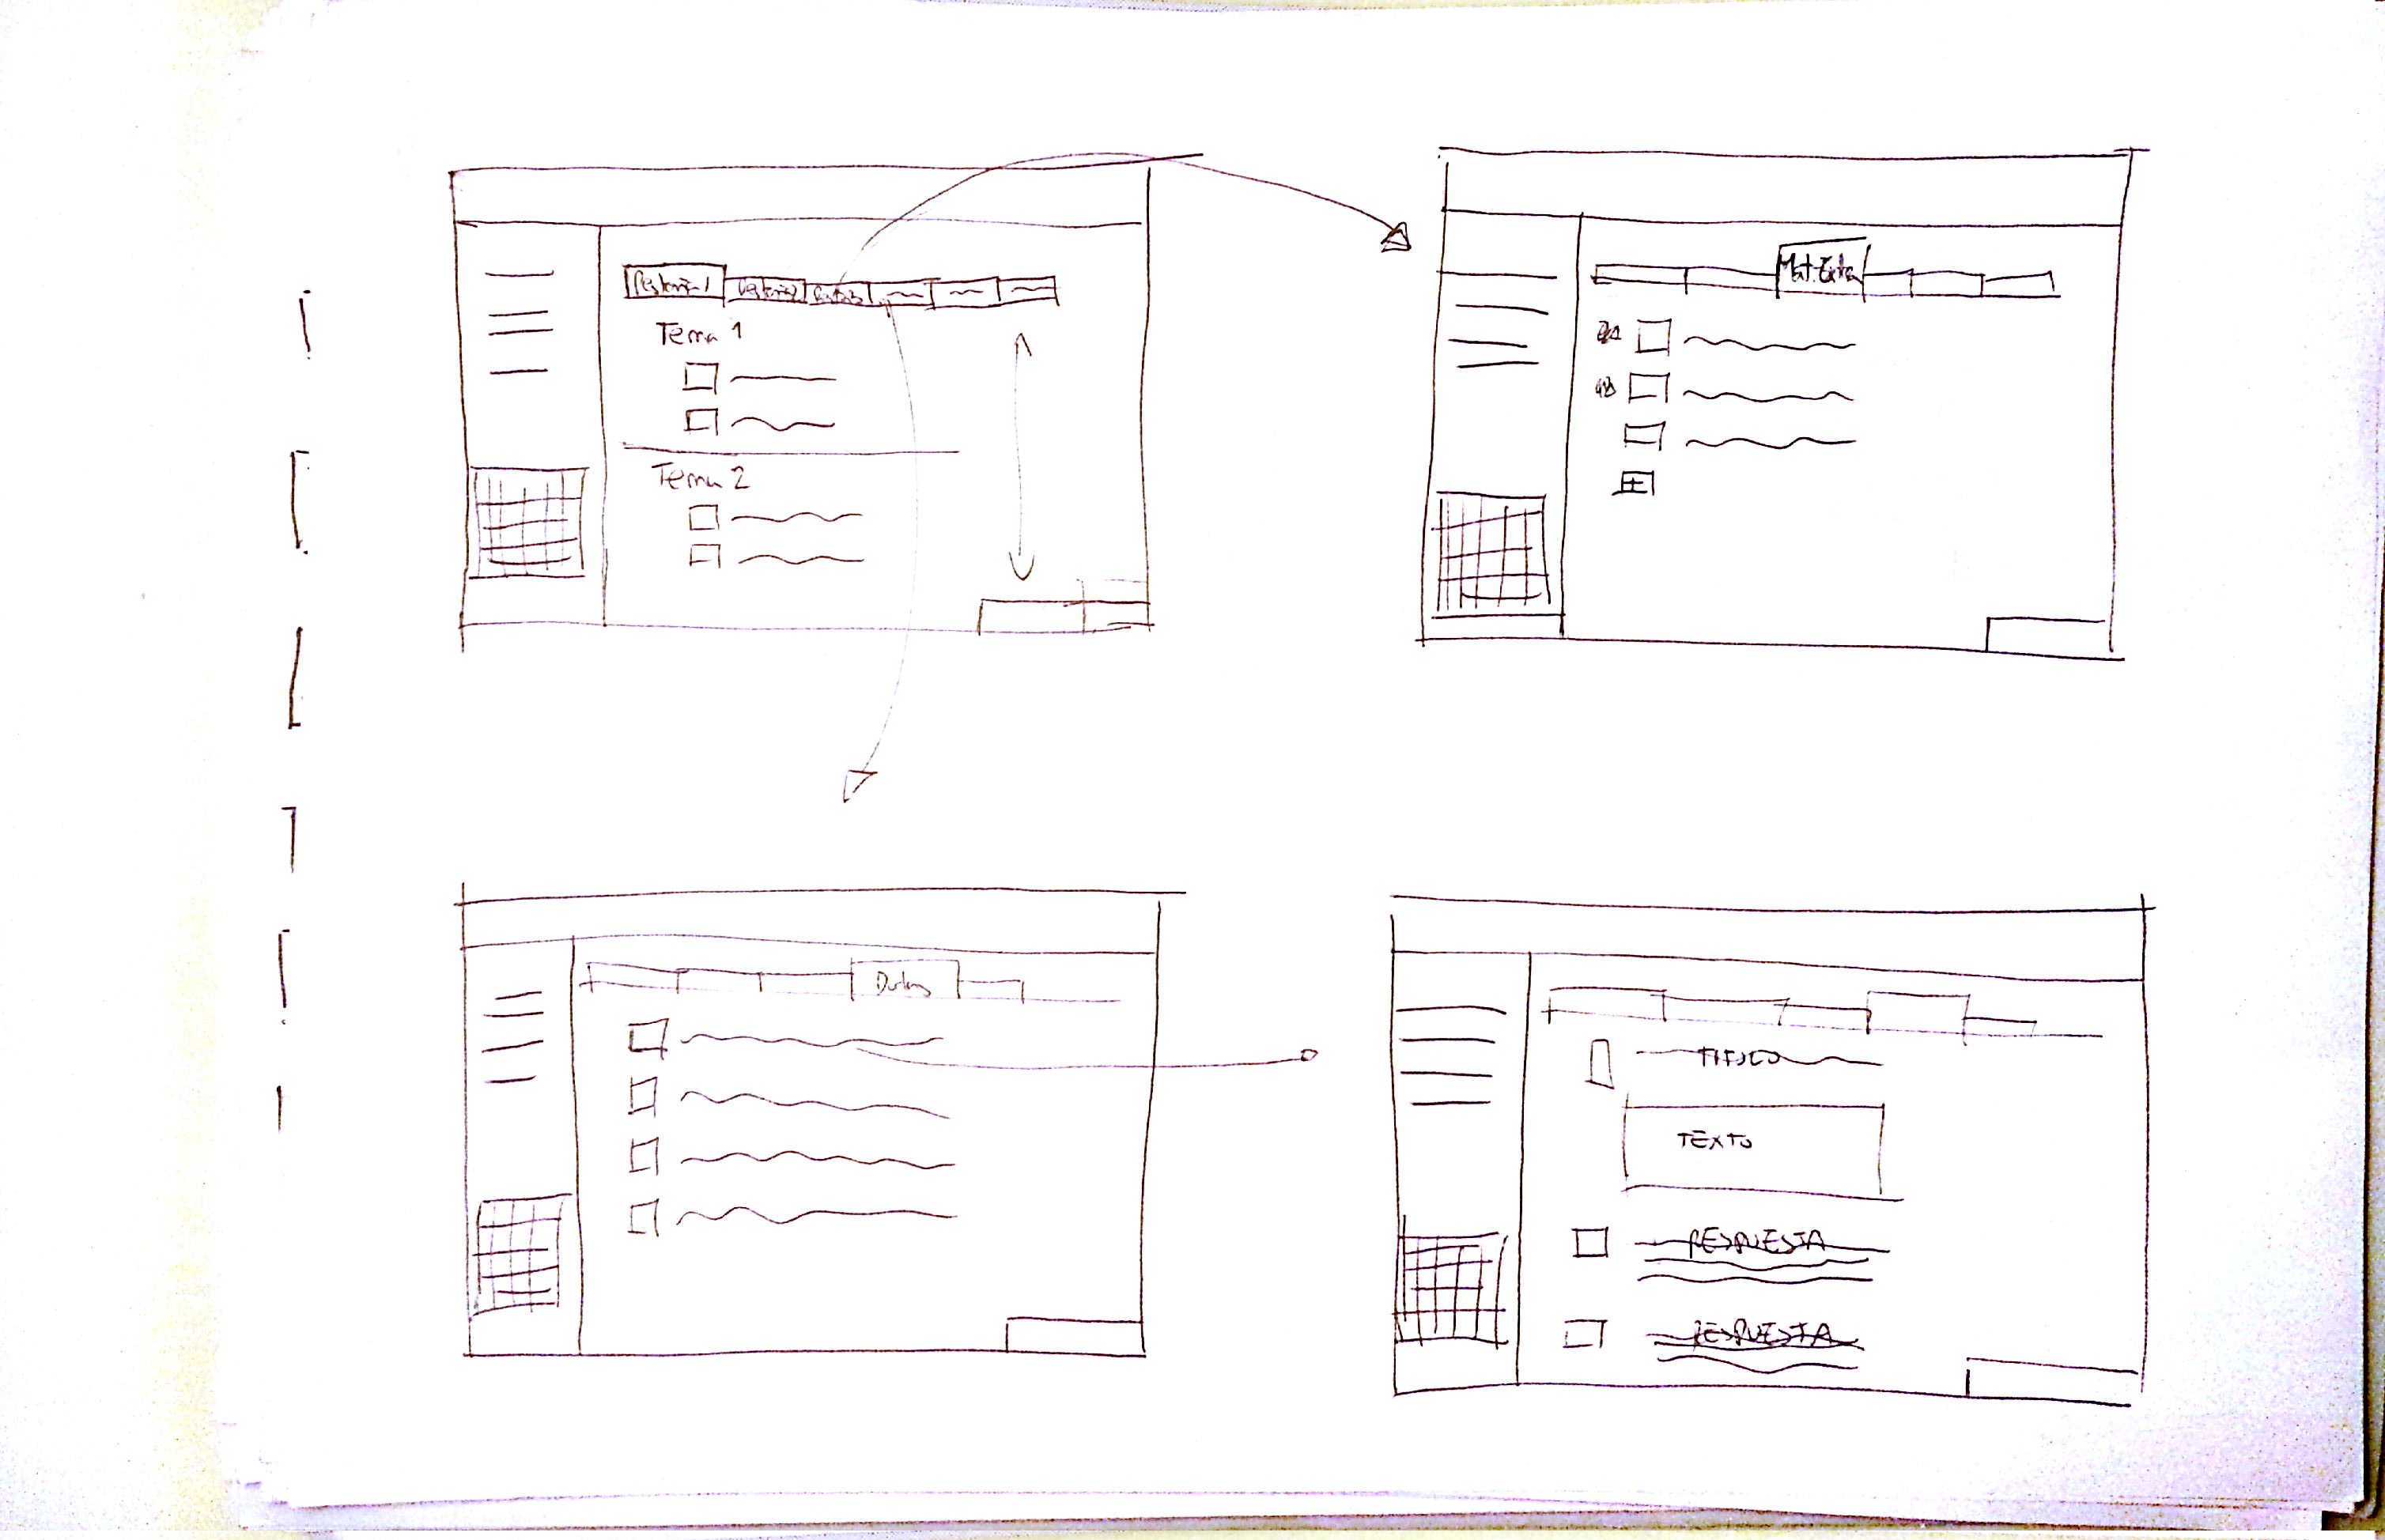 Pestaña 1
Tema 1
Tema 2
Mat. Extra
Dudas
TITULO
TEXTO
RESPUESTA
RESPUESTA